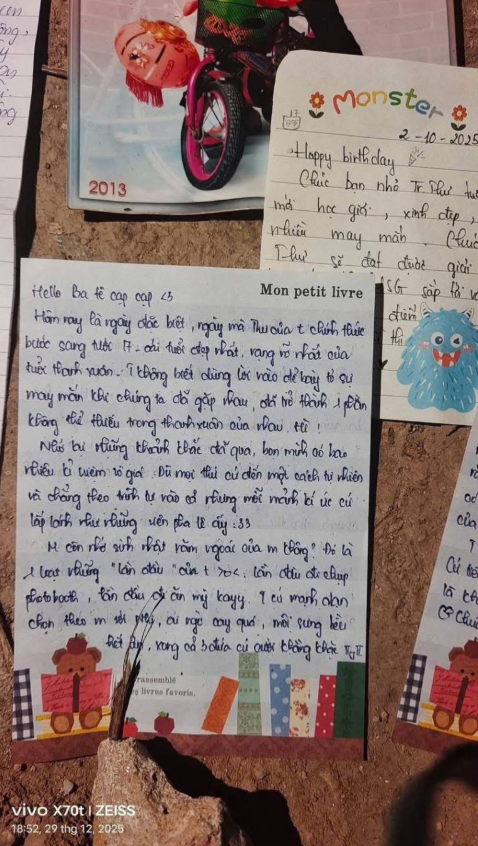 2013
Monster
2-10-2025
Happy birthday
Chúc bạn nhỏ Tr.Thư
mới học giỏi, xinh đẹp,
nhiều may mắn. Chúc
Thư sẽ đạt được giải
HSG sắp tới
điểm
th
Mon petit livre
Hello Ba tê cạp cạp <3
Hôm nay là ngày đặc biệt, ngày mà Thư của t chính thức
bước sang tuổi 17 - cái tuổi đẹp nhất, rạng rỡ nhất của
tuổi thanh xuân. T không biết dùng lời nào để bày tỏ sự
may mắn khi chúng ta đã gặp nhau, đã trở thành 1 phần
không thể thiếu trong thanh xuân của nhau. Hi!
Nhớ lại những khoảnh khắc đã qua, bọn mình có bao
nhiêu kỉ niệm rồi. Dù mọi thứ cứ đến một cách tự nhiên
và chẳng theo trình tự nào cả nhưng mỗi mảnh kí ức cứ
lấp lánh như những viên pha lê ấy :33
M còn nhớ sinh nhật năm ngoái của m không? Đó là
1 loạt những "lần đầu" của t >o<. lần đầu đi chụp
photobooth, lần đầu đi ăn mỳ kayy. T cứ mạnh dạn
chọn theo m rồi, ai ngờ cay quá, môi sưng
hết, xong cả bọn cứ cười không
rassemblé
es livres favoris.
vivo X70t | ZEISS
18:52, 29 thg 12, 2025